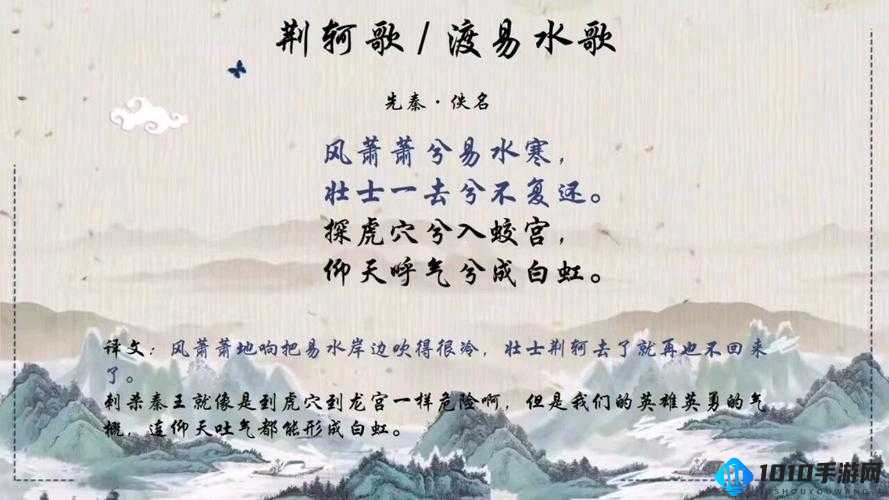 荆轲歌/渡易水歌
先秦·佚名
风萧萧兮易水寒，
壮士一去兮不复还。
探虎穴兮入蛟宫，
仰天呼气兮成白虹。
译文：风萧萧地响把易水岸边吹得很冷，壮士荆轲去了就再也不回来
了。
刺杀秦王就像是到虎穴到龙宫一样危险啊，但是我们的英雄英勇的气
概，连仰天吐气都能形成白虹。
1010手游网